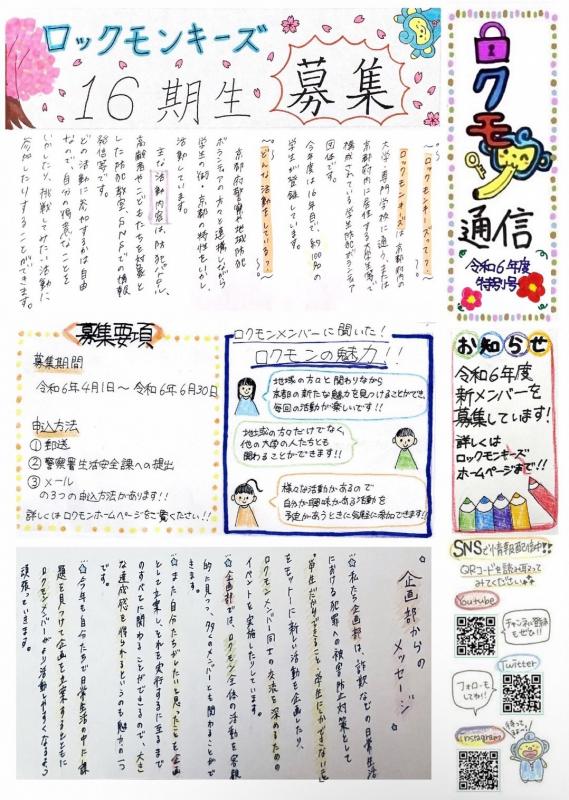 ロックモンキーズ
16期生 募集
ロクモン通信
令和6年度
特別号
〜ロックモンキーズって？〜
ロックモンキーズは、京都府内の
大学・専門学校に通う、または
京都府内に居住する大学生等で
構成されている学生防犯ボランティア
団体です。
今年度は16年目で、約100名の
学生が登録しています。
〜どんな活動をしている？〜
京都府警察や地域防犯
ボランティアの方々と連携しながら
学生の街・京都の特性をいかし
活動しています。
主な活動内容は、防犯パトロール、
高齢者や子どもたちを対象と
した防犯教室、SNSでの情報
発信等です。
どの活動に参加するかは自由
なので、自分の得意なことを
いかしたり、挑戦してみたい活動に
参加したりすることができます。
募集要項
募集期間
令和6年4月1日〜令和6年6月30日
申込方法
①郵送
②警察署生活安全課への提出
③メール
の3つの申込方法があります!!
詳しくはロクモンホームページをご覧ください!!
ロクモンメンバーに聞いた!
ロクモンの魅力!!
地域の方々と関わりながら
京都の新たな魅力を見つけることができ、
毎回の活動が楽しいです!!
地域の方々だけでなく、
他の大学の人たちとも
関わることができます!!
様々な活動があるので
自分が興味がある活動を
予定があうときに気軽に参加できます!!
お知らせ
令和6年度
新メンバーを
募集しています!
詳しくは
ロックモンキーズ
ホームページまで!!
企画部からの
メッセージ
☆私たち企画部は、詐欺などの日常生活
における犯罪への被害防止対策として
「学生だからできること・学生にしかできないこと」
をモットーに新しい活動を企画したり、
ロクモンメンバー同士の交流を深めるための
イベントを実施したりしています。
☆企画部では、ロクモン全体の活動を客観
的に見つつ、多くのメンバーとも関わることがで
きます。
☆また自分たちがしたいと思ったことを企画
として立案し、それを実行するに至るまで
のすべてに関わることができるので、大き
な達成感を得られるというのも魅力の一つ
です。
☆今年も自分たちで日常生活の中に課
題を見つけて企画を立案するとともに
ロクモンメンバーがより活動しやすくなるよう
頑張っていきます。
SNSで情報配信中!!
QRコードを読み取って
みてください
Youtube
チャンネル登録
もぜひ!!
Twitter
フォローも
してね!!
Instagram
待ってるよ〜!